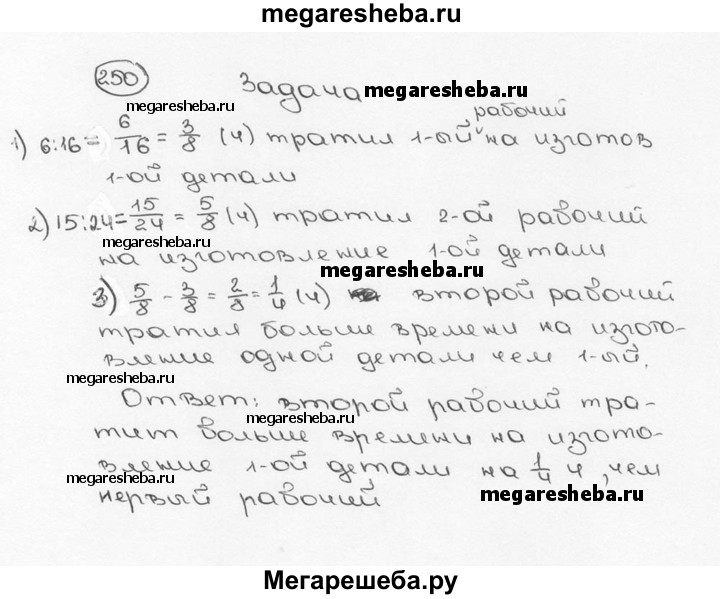 megaresheba.ru
250 Задача megaresheba.ru
megaresheba.ru рабочий
1) 6:16 = 6/16 = 3/8 (ч) тратил 1-ый на изготов
1-ой детали
2) 15:24 = 15/24 = 5/8 (ч) тратил 2-ой рабочий
на изготовление 1-ой детали
megaresheba.ru
3) 5/8 - 3/8 = 2/8 = 1/4 (ч) второй рабочий
тратил больше времени на изгото-
вление одной детали чем 1-ый.
megaresheba.ru
Ответ: второй рабочий тра-
megaresheba.ru
тит больше времени на изгото-
вление 1-ой детали на 1/4 ч, чем
megaresheba.ru
первый рабочий megaresheba.ru
Мегарешеба.ру